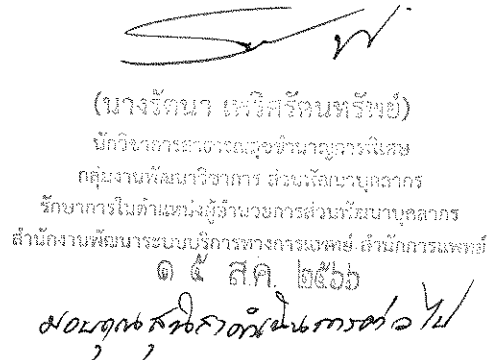 (นางรัตนา เพริศรัตนทรัพย์)
นักวิชาการสาธารณสุขชำนาญการพิเศษ
กลุ่มงานพัฒนาวิชาการ ส่วนพัฒนาบุคลากร
รักษาการในตำแหน่งผู้อำนวยการส่วนพัฒนาบุคลากร
สำนักงานพัฒนาระบบบริการทางการแพทย์ สำนักการแพทย์
๑ ๕ ส.ค. ๒๕๖๖
มอบคุณสุนิสาดำเนินการต่อไป